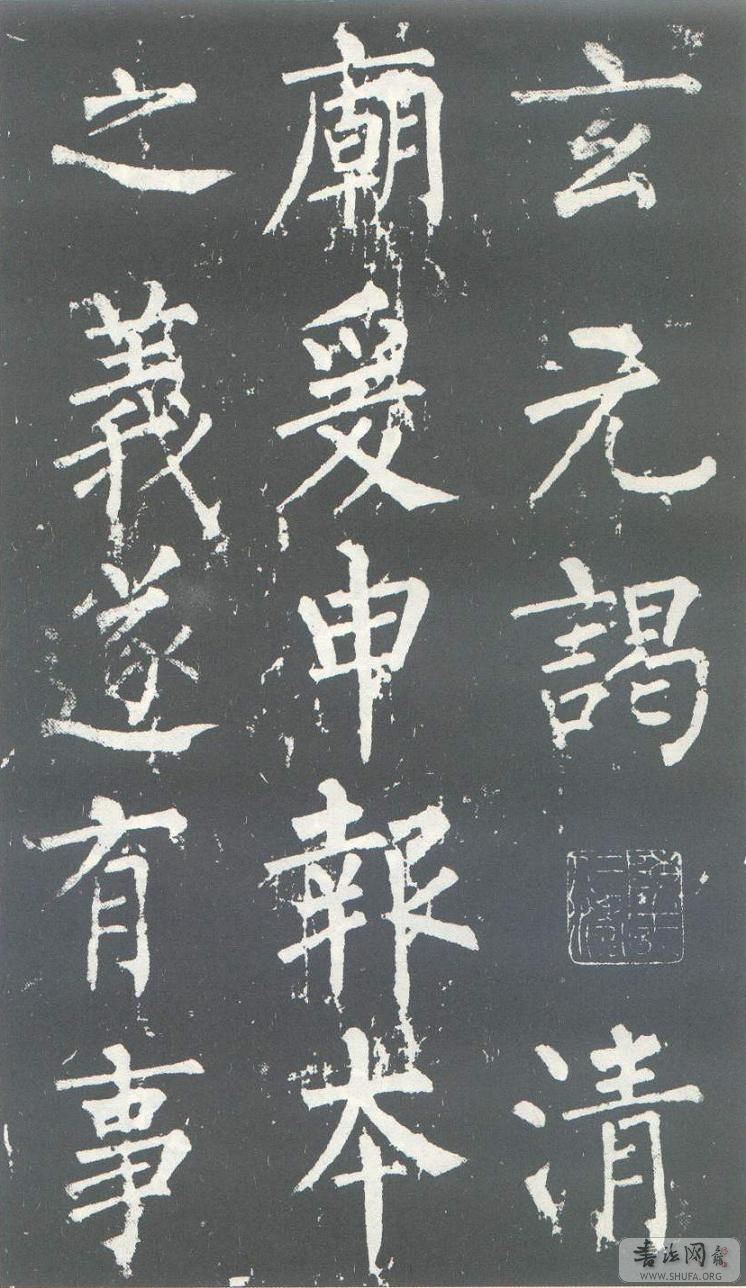 玄元謁清
廟爰申報本
之義遂有事
書法网
WWW.SHUFA.ORG